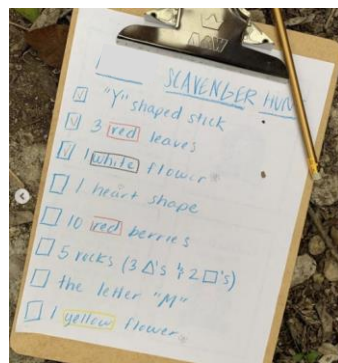 SCAVENGER HUN
"Y" shaped stick
3 red leaves
1 white flower
1 heart shape
10 red berries
5 rocks (3 △'s & 2 □'s)
the letter "M"
1 yellow flower